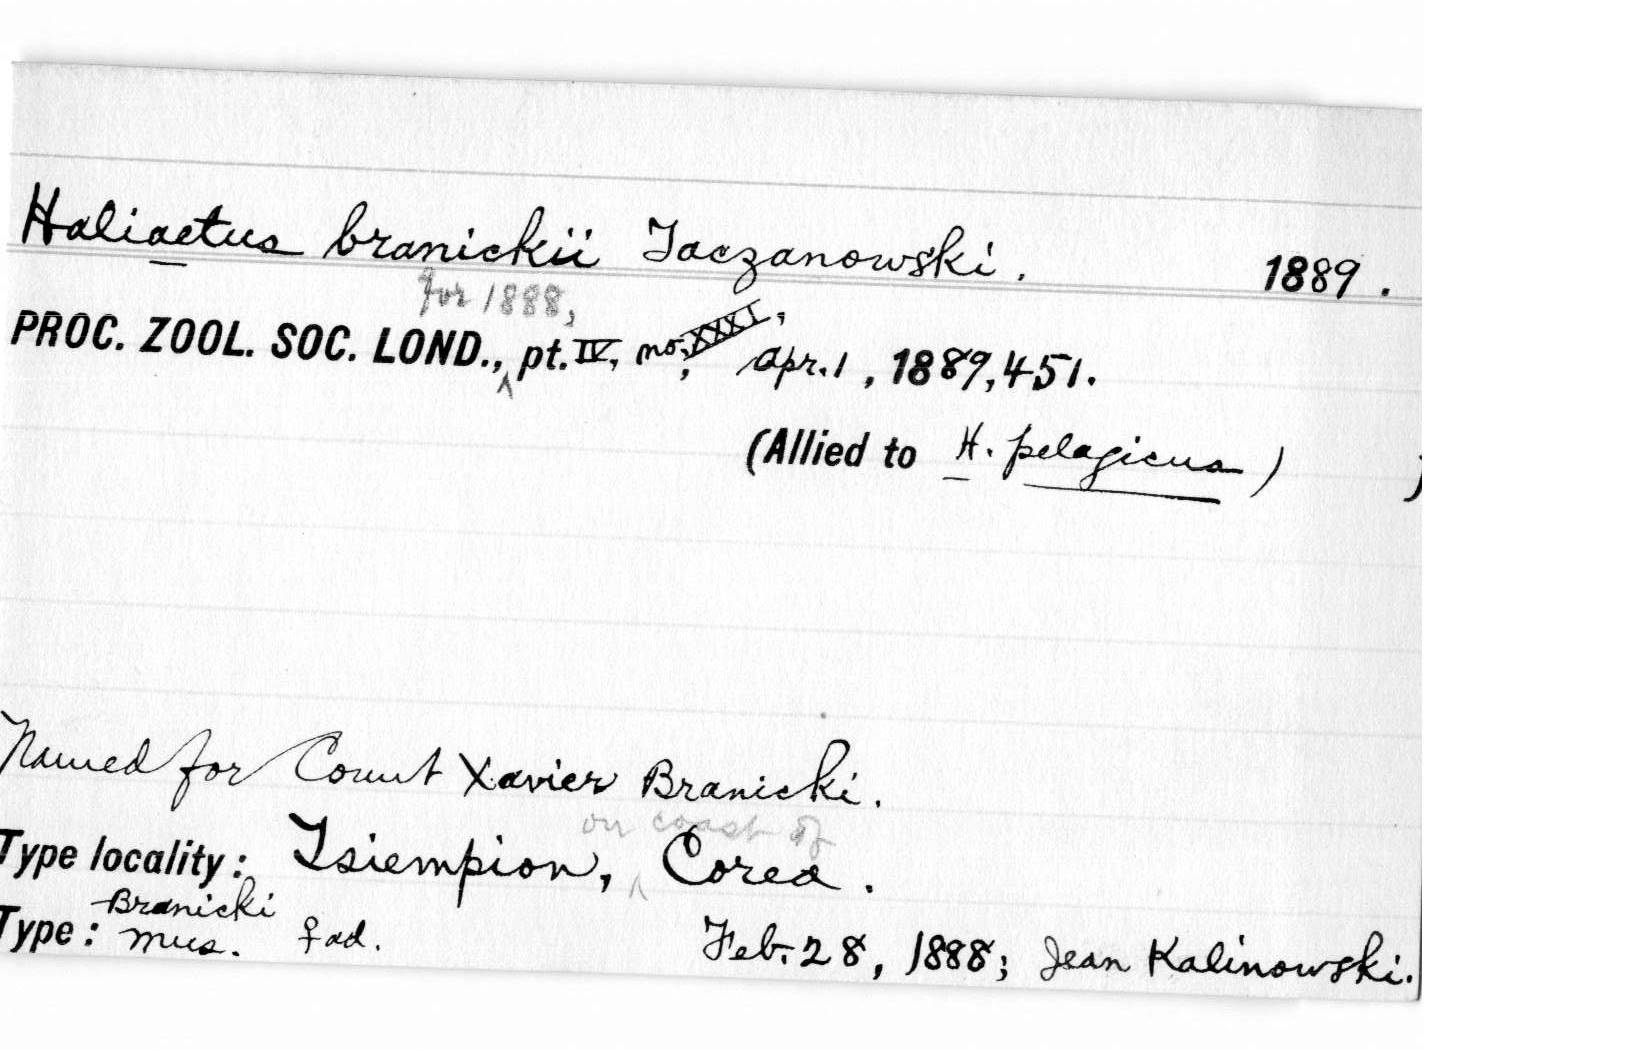 Haliaetus branickii Taczanowski. 1889.
for 1888,
PROC. ZOOL. SOC. LOND., pt. IV, no. XXXI, Apr. 1, 1889, 451.
(Allied to H. pelagicus) )
Named for Count Xavier Branicki.
on coast of
Type locality: Tsiempion, Corea.
Branicki
Type: Mus. ♀ ad. Feb. 28, 1888; Jean Kalinowski.